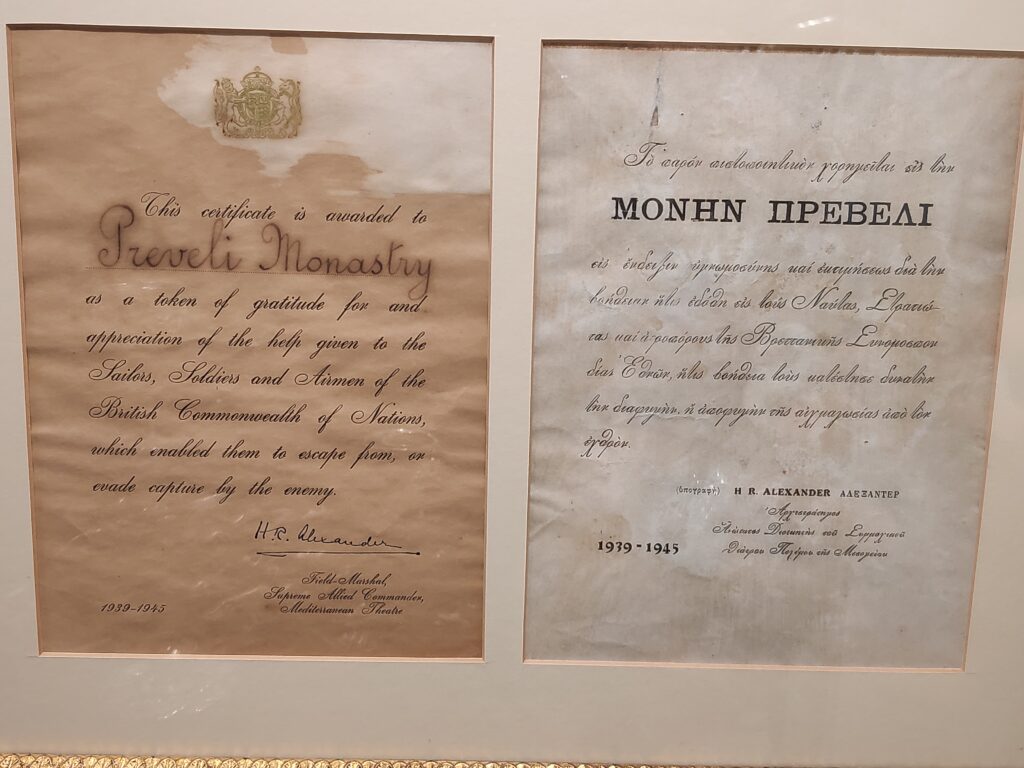 This certificate is awarded to
Preveli Monastry
as a token of gratitude for and
appreciation of the help given to the
Sailors, Soldiers and Airmen of the
British Commonwealth of Nations,
which enabled them to escape from, or
evade capture by the enemy.
H.R. Alexander
Field-Marshal,
Supreme Allied Commander,
Mediterranean Theatre
1939-1945
Τὸ παρὸν πιστοποιητικὸν χορηγεῖται εἰς τὴν
ΜΟΝΗΝ ΠΡΕΒΕΛΙ
εἰς ἔνδειξιν εὐγνωμοσύνης καὶ ἐκτιμήσεως διὰ τὴν
βοήθειαν ἥτις ἐδόθη εἰς τοὺς Ναύτας, Στρατιώ-
τας καὶ ἀεροπόρους τῆς Βρεττανικῆς Συνομοσπον
δίας Ἐθνῶν, ἥτις βοήθεια τοὺς κατέστησε δυνατὴν
τὴν διαφυγὴν, ἢ ἀποφυγὴν τῆς αἰχμαλωσίας ἀπὸ τὸν
ἐχθρὸν.
(ὑπογραφὴ) H R. ALEXANDER ΑΛΕΞΑΝΤΕΡ
Ἀρχιστράτηγος
Ἀνώτατος Διοικητὴς τοῦ Συμμαχικοῦ
Θεάτρου Πολέμου τῆς Μεσογείου
1939-1945